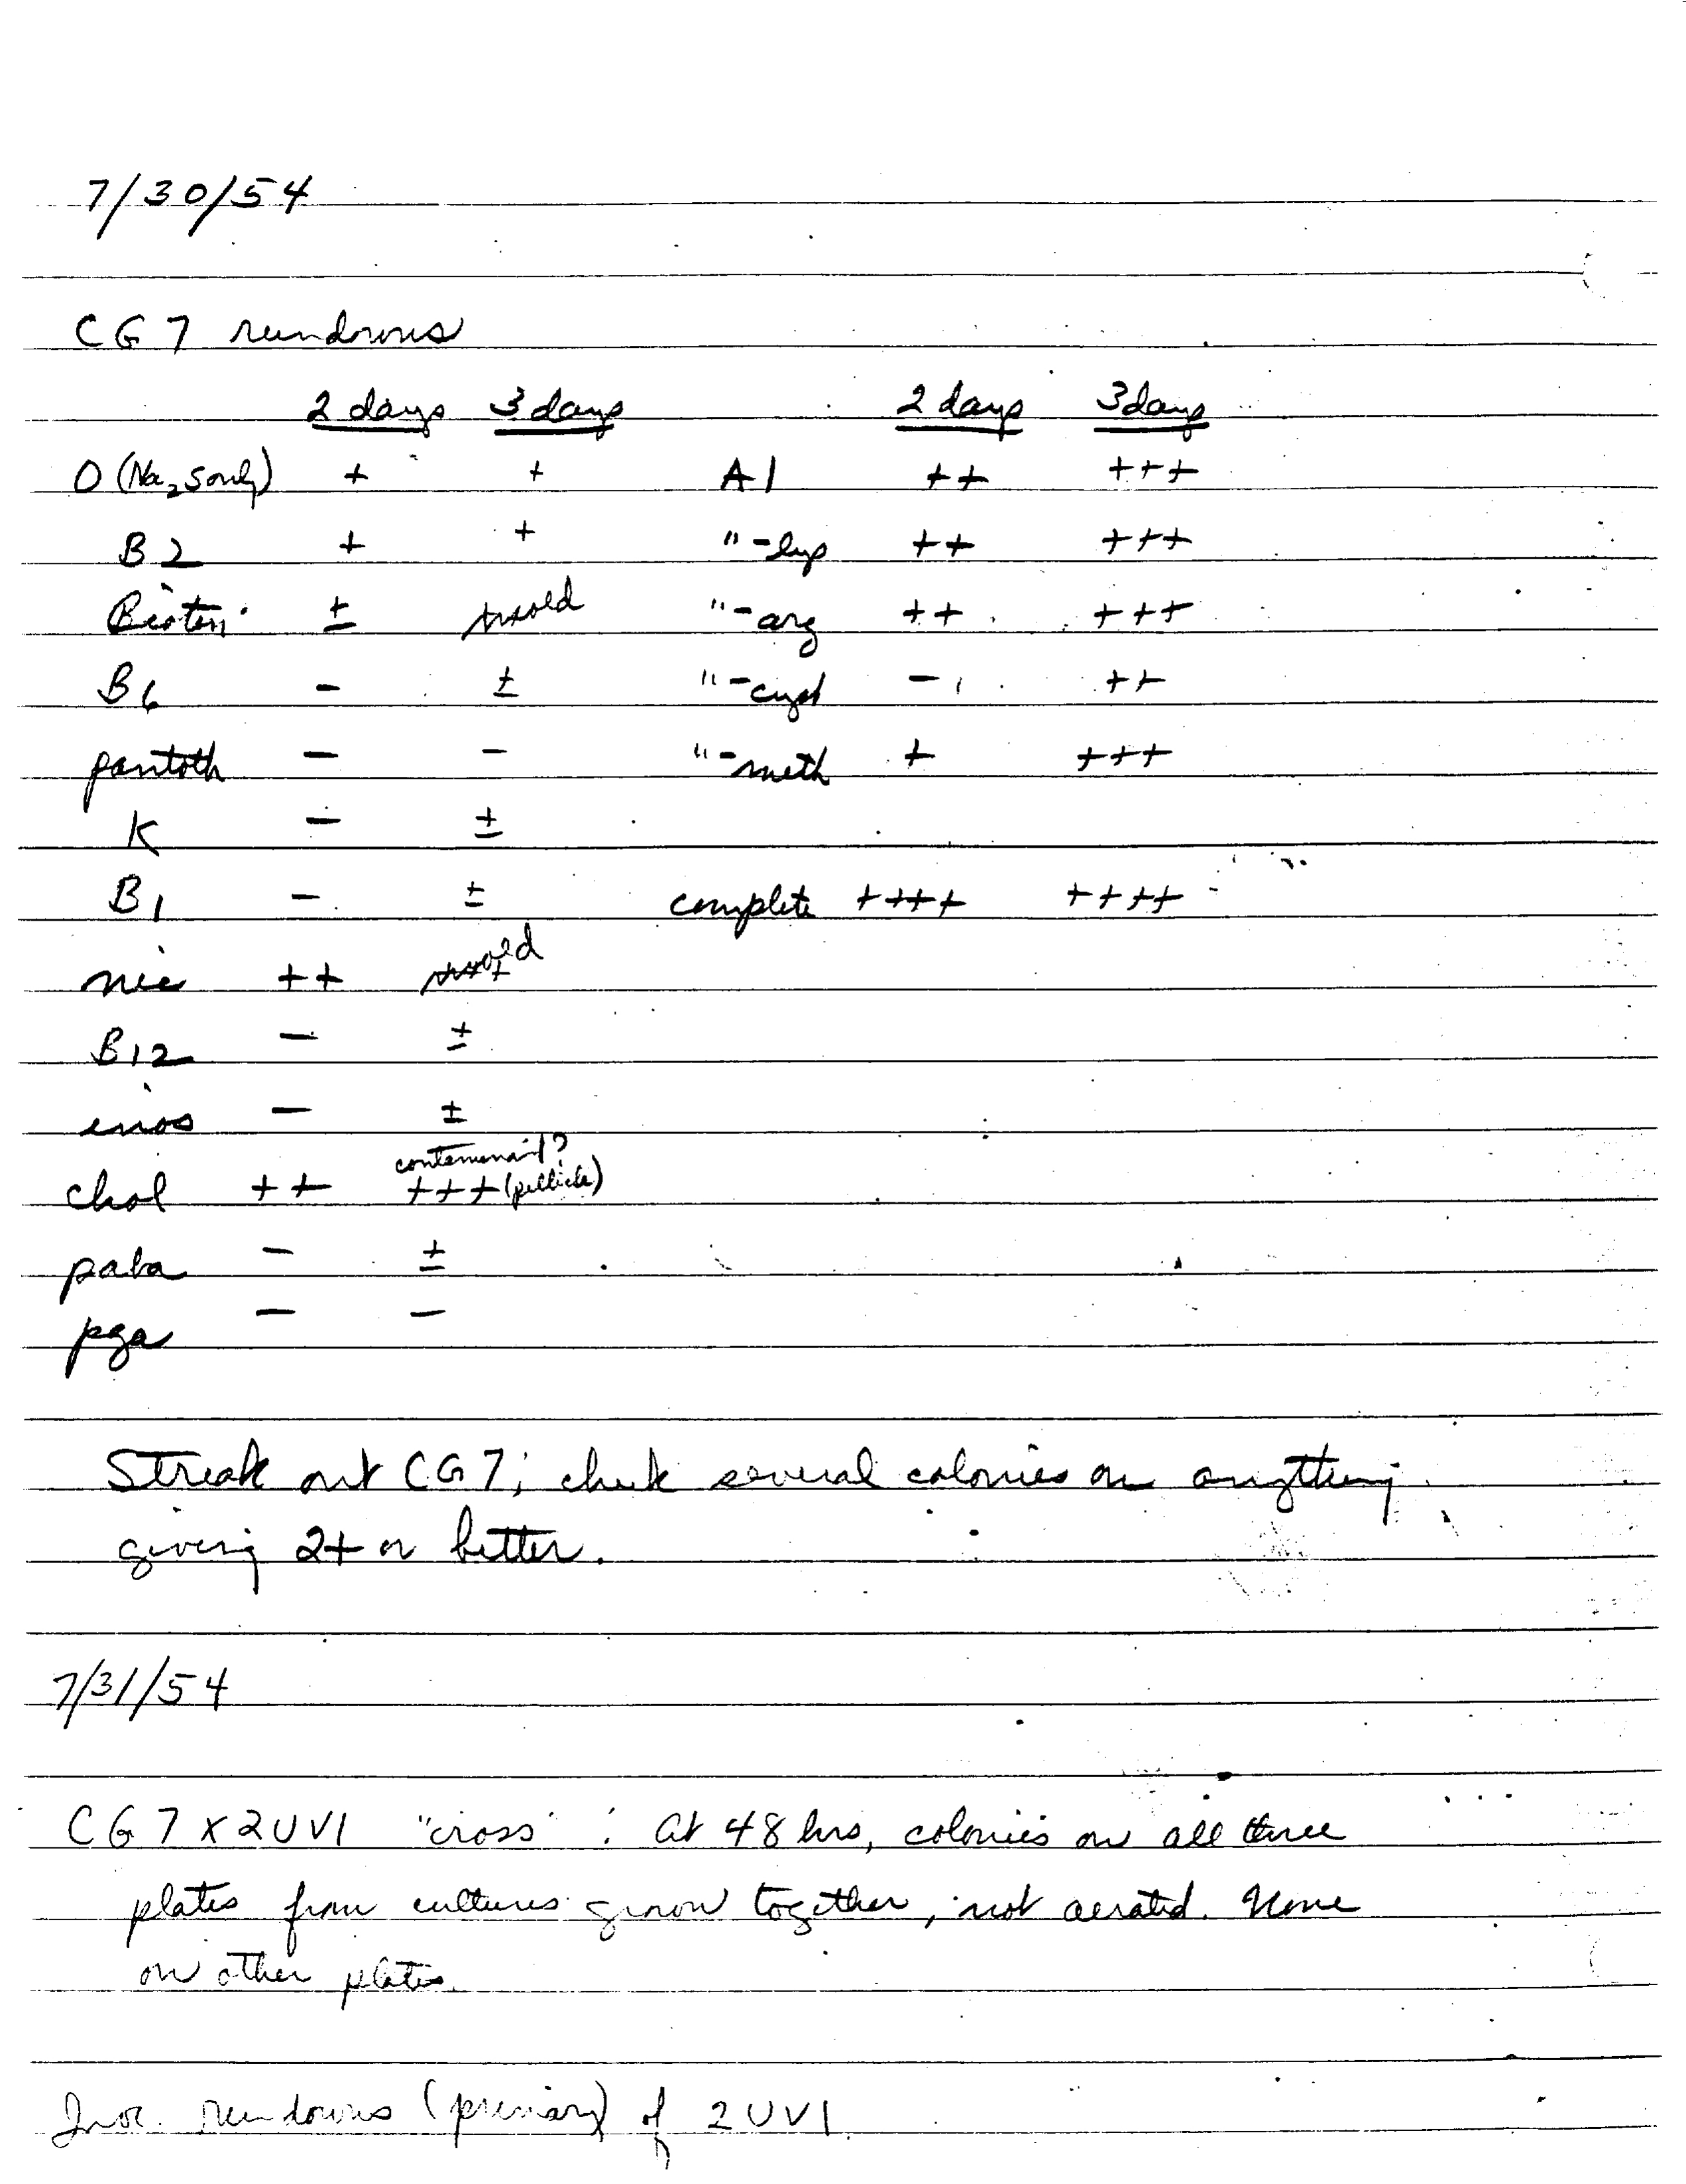 7/30/54
CG7 rundowns
2 days 3 days 2 days 3 days
O (Na2S only) + + A1 ++ +++
B2 + + "-lys ++ +++
Biotin ± mold "-arg ++ +++
B6 - ± "-cyst - ++
pantoth - - "-meth + +++
K - ±
B1 - ± complete ++++ ++++
nic ++ mold
B12 - ±
inos - ±
contaminant?
chol ++ +++ (pellicle)
paba - ±
pga - -
Streak out CG7; check several colonies on anything
giving 2+ or better.
7/31/54
CG7 x 2UV1 "cross": At 48 hrs, colonies on all three
plates from cultures grown together, not aerated. None
on other plates.
Inoc. rundowns (primary) of 2UV1